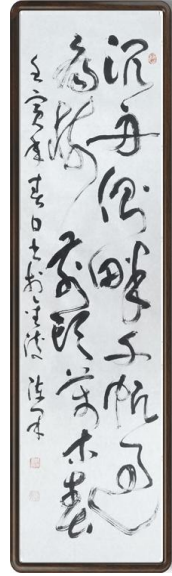 沉舟侧畔千帆过
病树前头万木春
壬寅年春日书于金陵